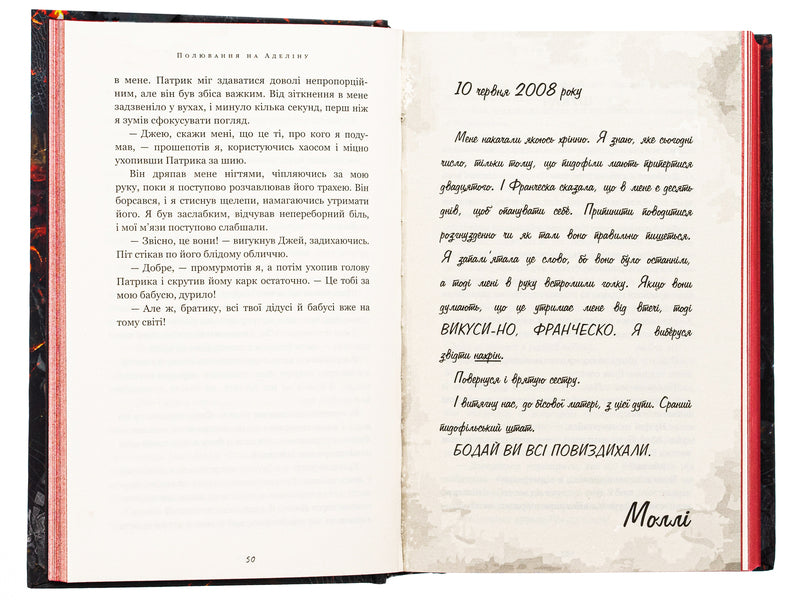 Полювання на Аделіну
в мене. Патрик міг здаватися доволі непропорцій-
ним, але він був збіса важким. Від зіткнення в мене
задзвеніло у вухах, і минуло кілька секунд, перш ніж
я зумів сфокусувати погляд.
— Джею, скажи мені, що це ті, про кого я поду-
мав, — прошепотів я, користуючись хаосом і міцно
ухопивши Патрика за шию.
Він дряпав мене нігтями, чіпляючись за мою
руку, поки я поступово розчавлював його трахею. Він
борсався, і я стиснув щелепи, намагаючись утримати
його. Я був заслабким, відчував непереборний біль,
і мої м’язи поступово слабшали.
— Звісно, це вони! — вигукнув Джей, задихаючись.
Піт стікав по його блідому обличчю.
— Добре, — промурмотів я, а потім ухопив голову
Патрика і скрутив йому карк остаточно. — Це тобі за
мою бабусю, дурило!
— Але ж, братику, всі твої дідусі й бабусі вже на
тому світі!
50
10 червня 2008 року
Мене накачали якоюсь хрінню. Я знаю, яке сьогодні
число, тільки тому, що підофіли мають припертися
двадцятого. І Франческа сказала, що в мене є десять
днів, щоб опанувати себе. Припинити поводитися
розчнузденно чи як там воно правильно пишеться.
Я запам’ятала це слово, бо воно було останнім,
а тоді мені в руку встромили голку. Якщо вони
думають, що це утримає мене від втечі, тоді
ВИКУСИ-НО, ФРАНЧЕСКО. Я виберуся
звідти нахрін.
Повернуся і врятую сестру.
І витягну нас, до бісової матері, з цієї дупи. Сраний
підофільський штат.
БОДАЙ ВИ ВСІ ПОВИЗДИХАЛИ.
Моллі